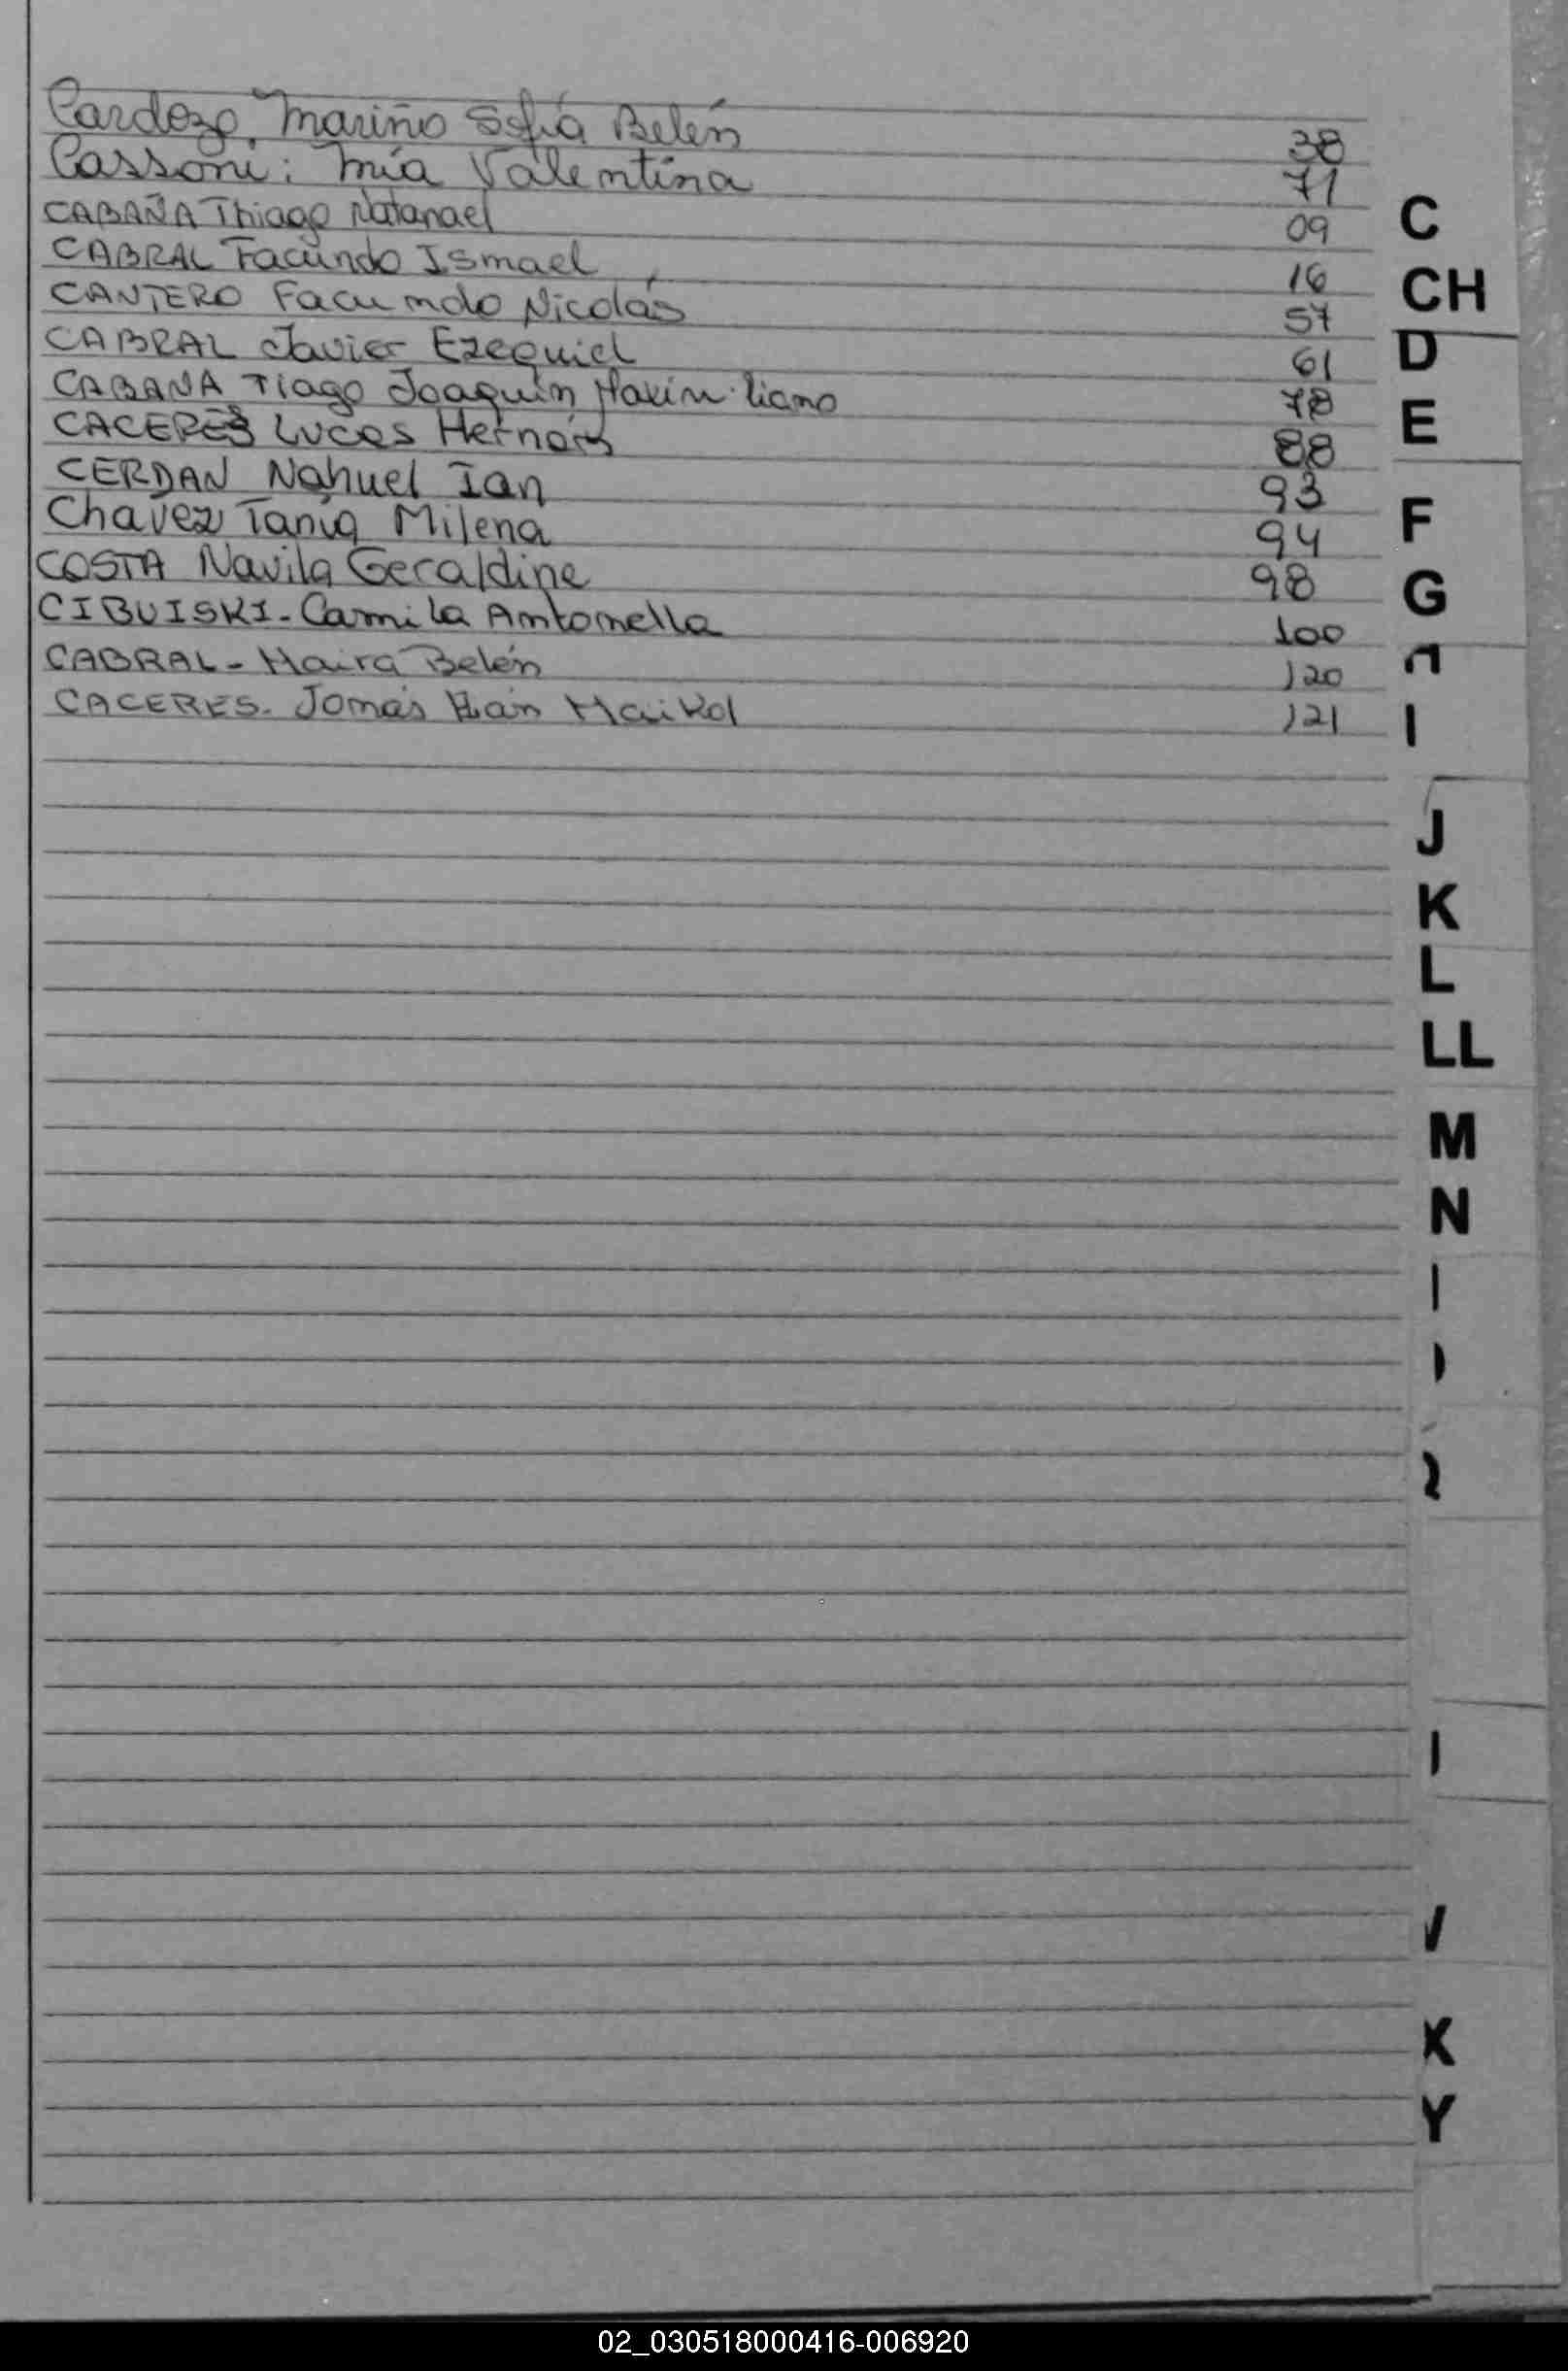 Cardozo, Mariño Sofía Belén 38
Cassoni: Mía Valentina 71
CABAÑA Thiago Natanael 09
CABRAL Facundo Ismael 16
CANTERO Facundo Nicolás 57
CABRAL Javier Ezequiel 61
CABAÑA Tiago Joaquín Maximiliano 78
CACERES Lucas Hernán 88
CERDAN Nahuel Ian 93
Chavez Tania Milena 94
COSTA Navila Geraldine 98
CIBUISKI - Camila Antonella 100
CABRAL - Maira Belén 120
CACERES - Tomás Maikol 121
C
CH
D
E
F
G
I
J
K
L
LL
M
N
X
Y
02_030518000416-006920